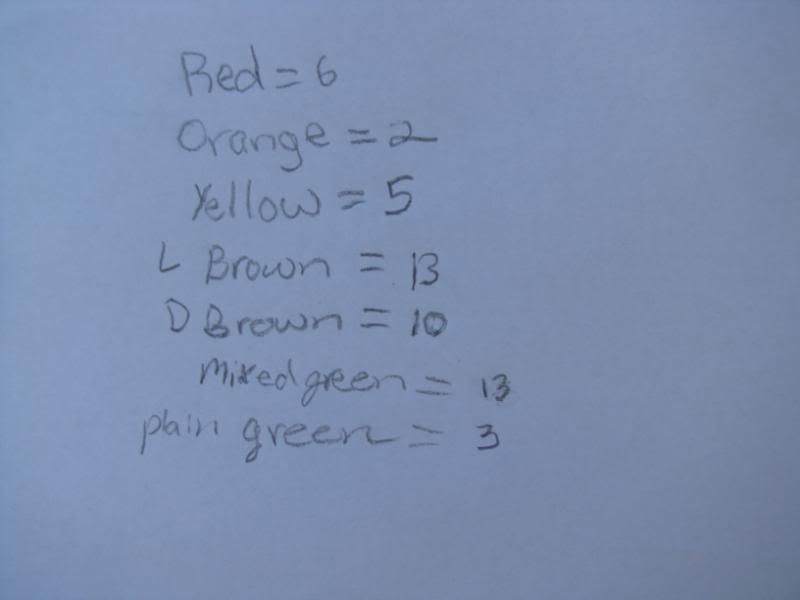 Red = 6
Orange = 2
Yellow = 5
L Brown = 13
D Brown = 10
Mixed green = 13
plain green = 3